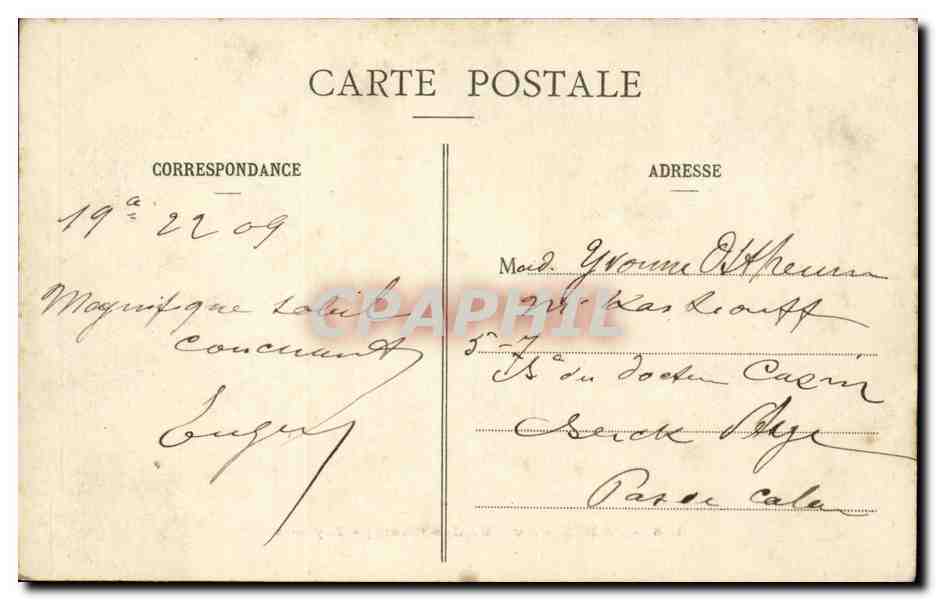 CARTE POSTALE
CORRESPONDANCE
19 22 09
Magnifique soleil
couchant
ADRESSE
Mad. Yvonne
5-7
Bd du docteur Cazin
Berck Plage
Pas de Calais
CPAPHIL